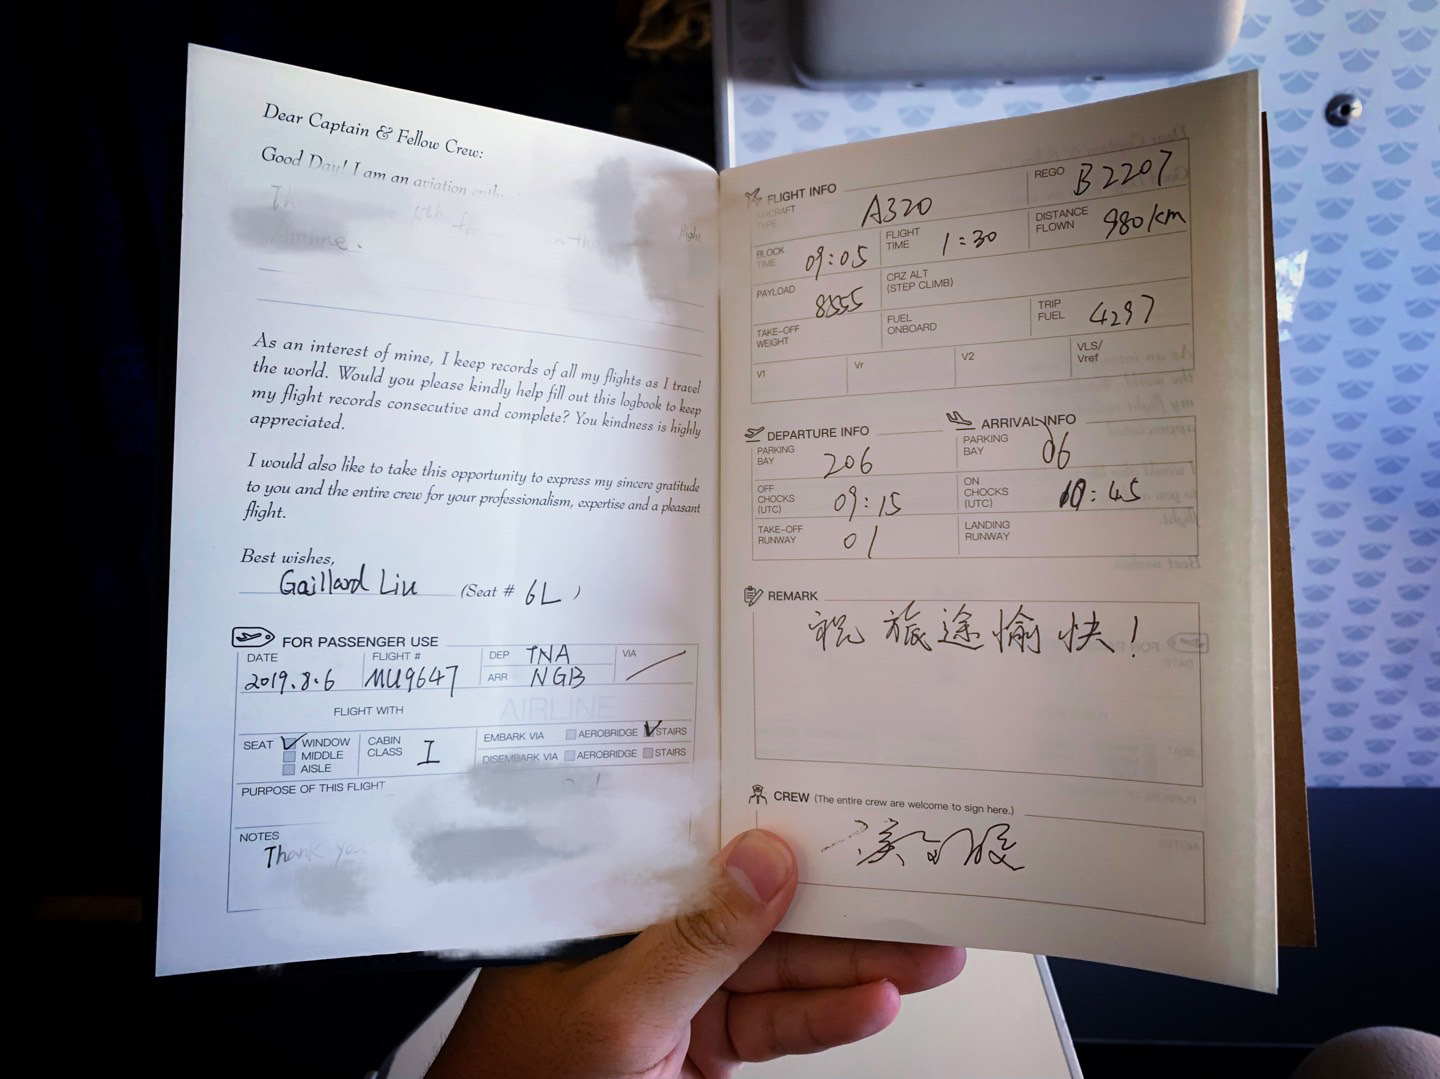 Dear Captain & Fellow Crew:
Good Day! I am an aviation
flight
Airline.
As an interest of mine, I keep records of all my flights as I travel
the world. Would you please kindly help fill out this logbook to keep
my flight records consecutive and complete? You kindness is highly
appreciated.
I would also like to take this opportunity to express my sincere gratitude
to you and the entire crew for your professionalism, expertise and a pleasant
flight.
Best wishes,
Gaillard Liu (Seat # 6L )
FOR PASSENGER USE
DATE 2019.8.6 FLIGHT # MU9647 DEP TNA VIA
ARR NGB
FLIGHT WITH AIRLINE
SEAT WINDOW MIDDLE AISLE
CABIN CLASS I
EMBARK VIA AEROBRIDGE STAIRS
DISEMBARK VIA AEROBRIDGE STAIRS
PURPOSE OF THIS FLIGHT
NOTES
Thank you
FLIGHT INFO
AIRCRAFT TYPE A320 REGO B2207
BLOCK TIME 09:05 FLIGHT TIME 1:30 DISTANCE FLOWN 980/km
PAYLOAD 8555 CRZ ALT (STEP CLIMB)
TAKE-OFF WEIGHT FUEL ONBOARD TRIP FUEL 4297
V1 Vr V2 VLS/ Vref
DEPARTURE INFO
PARKING BAY 206
OFF CHOCKS (UTC) 09:15
TAKE-OFF RUNWAY 01
ARRIVAL INFO
PARKING BAY 06
ON CHOCKS (UTC) 10:45
LANDING RUNWAY
REMARK
祝旅途愉快!
CREW (The entire crew are welcome to sign here.)